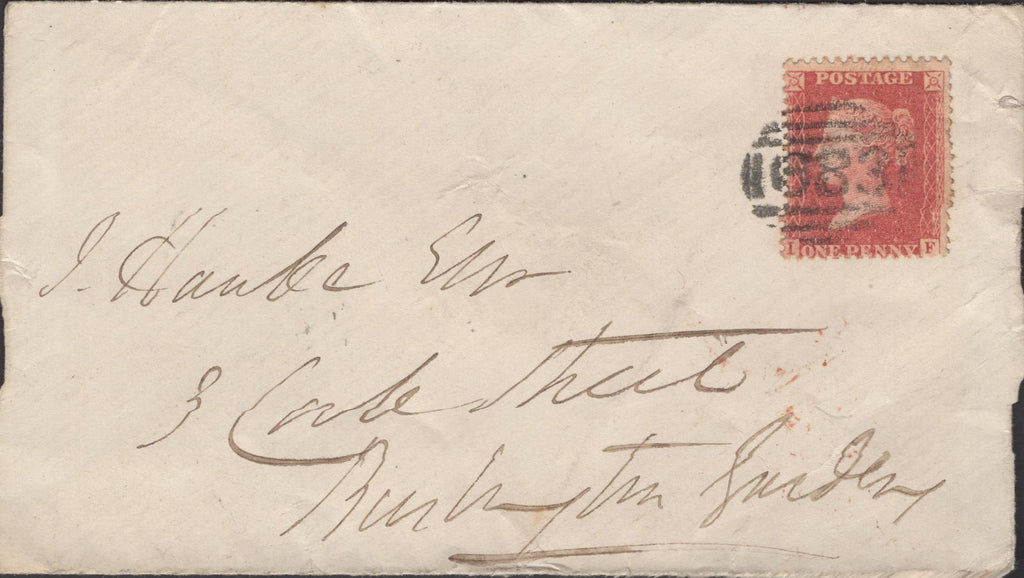 POSTAGE
983
I ONE PENNY F
J. Hawke Esqr
3 Cork Street
Burlington Gardens